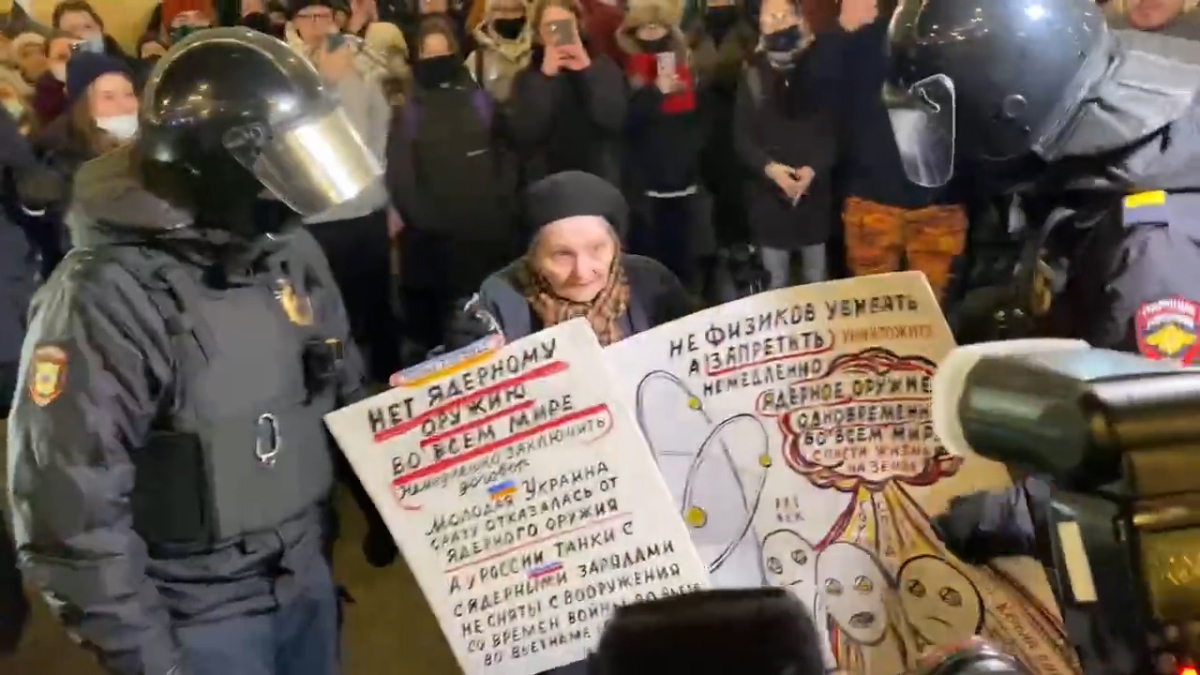 НЕТ ЯДЕРНОМУ
ОРУЖИЮ
ВО ВСЕМ МИРЕ
немедленно заключить
договор
МОЛОДАЯ УКРАИНА
СРАЗУ ОТКАЗАЛАСЬ ОТ
ЯДЕРНОГО ОРУЖИЯ
А У РОССИИ ТАНКИ С
ЯДЕРНЫМИ ЗАРЯДАМИ
НЕ СНЯТЫ С ВООРУЖЕНИЯ
СО ВРЕМЕН ВОЙНЫ
ВО ВЬЕТНАМЕ
НЕ ФИЗИКОВ УБИВАТЬ
А ЗАПРЕТИТЬ УНИЧТОЖИТЬ
НЕМЕДЛЕННО
ЯДЕРНОЕ ОРУЖИЕ
ОДНОВРЕМЕНН
ВО ВСЕМ МИРЕ
СПАСТИ ЖИЗНЬ
НА ЗЕМЛЕ